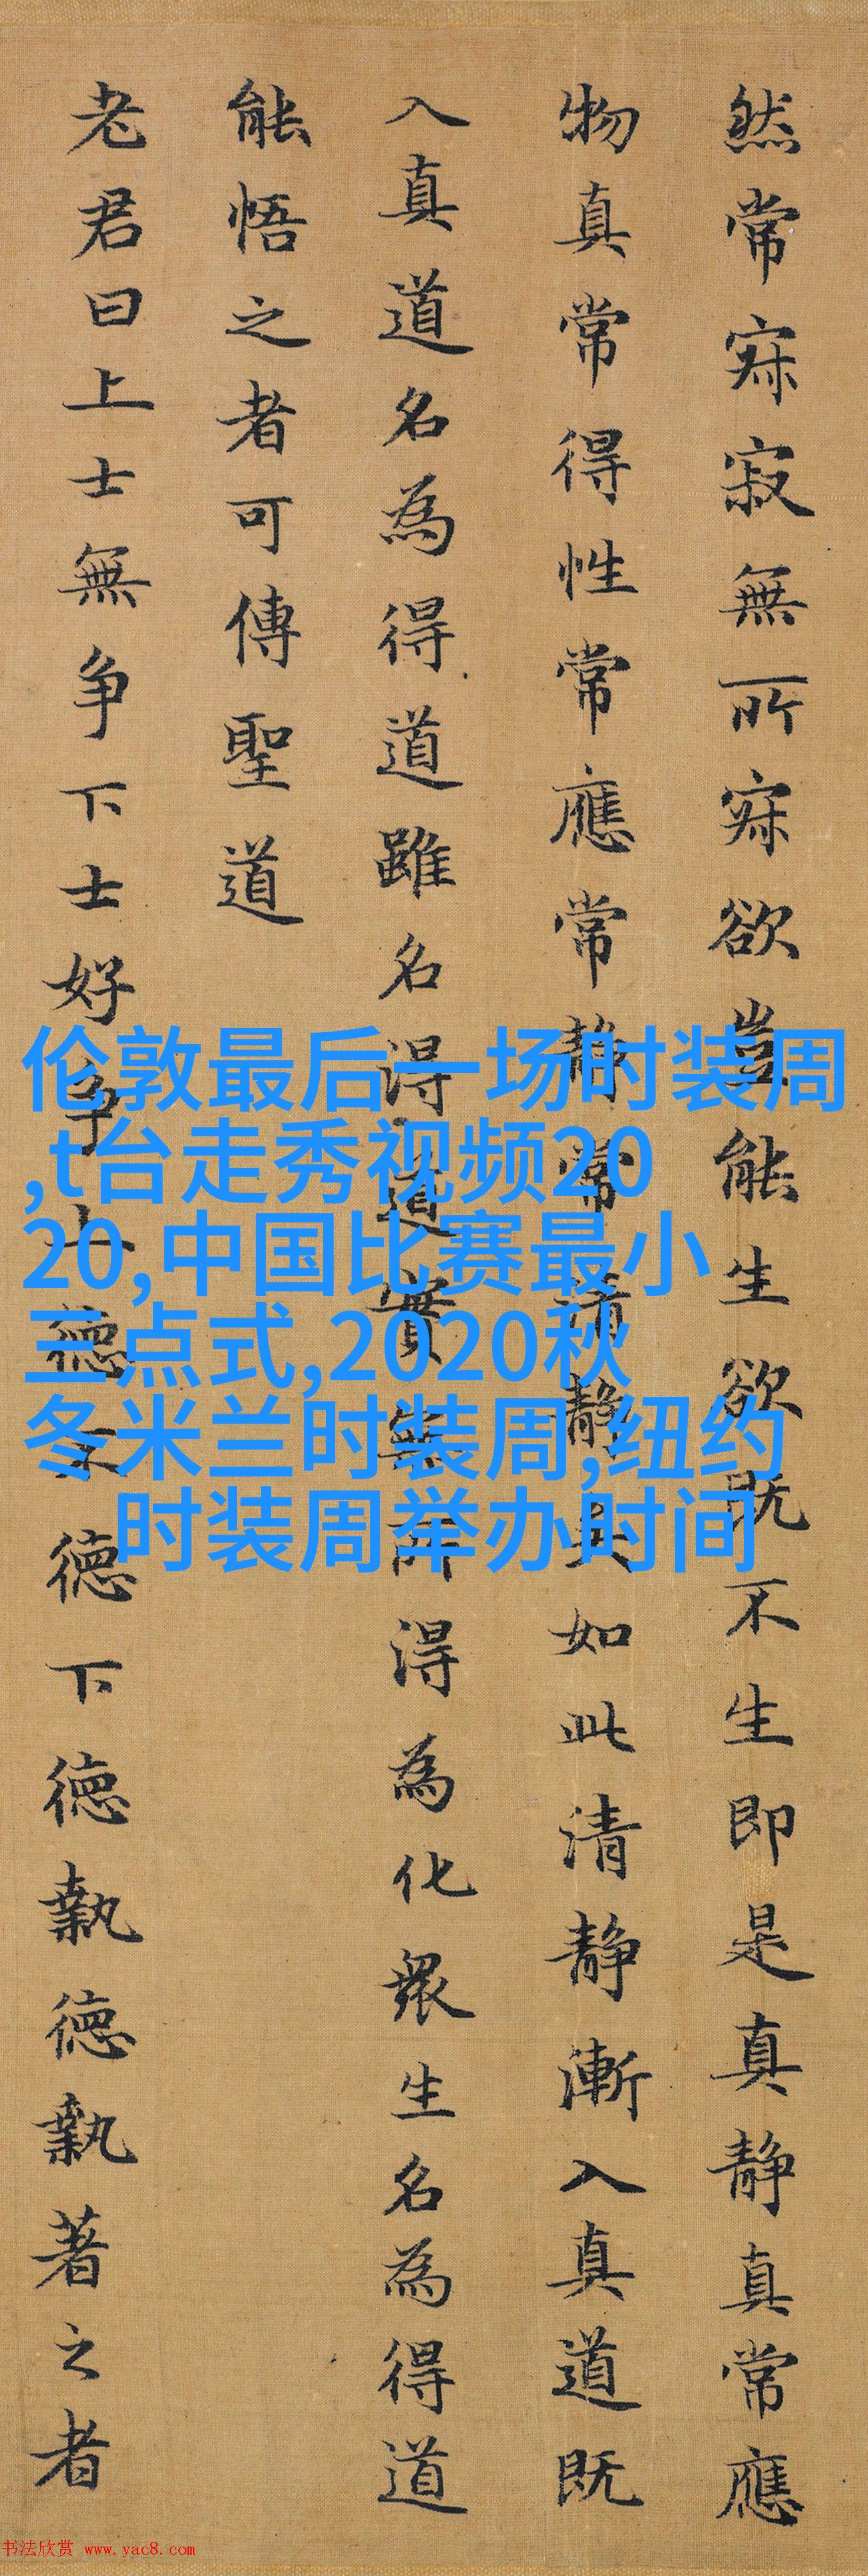 然常寂寂無所寂欲豈能生欲既不生即是真静真常應
物真常得性常應常静常清静矣如此清静漸入真道既
入真道名為得道雖名得道實無所得為化衆生名為得道
能悟之者可傳聖道
老君曰上士無争下士好争上德不德下德執德執著之者
伦敦最后一场时装周
,t台走秀视频20
20,中国比赛最小
三点式,2020秋
冬米兰时装周,纽约
时装周举办时间
书法欣赏 www.yac8.com